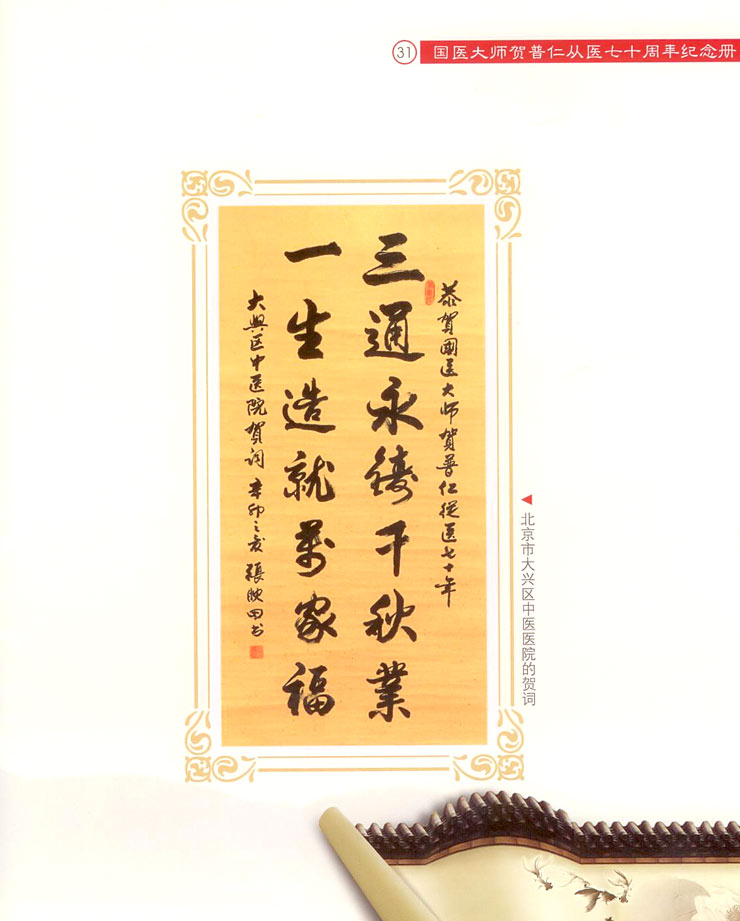 31 国医大师贺普仁从医七十周年纪念册
恭賀國医大师賀普仁從医七十年
三通永鑄千秋業
一生造就萬家福
大興区中医院賀词 辛卯之夏 張映田书
北京市大兴区中医医院的贺词